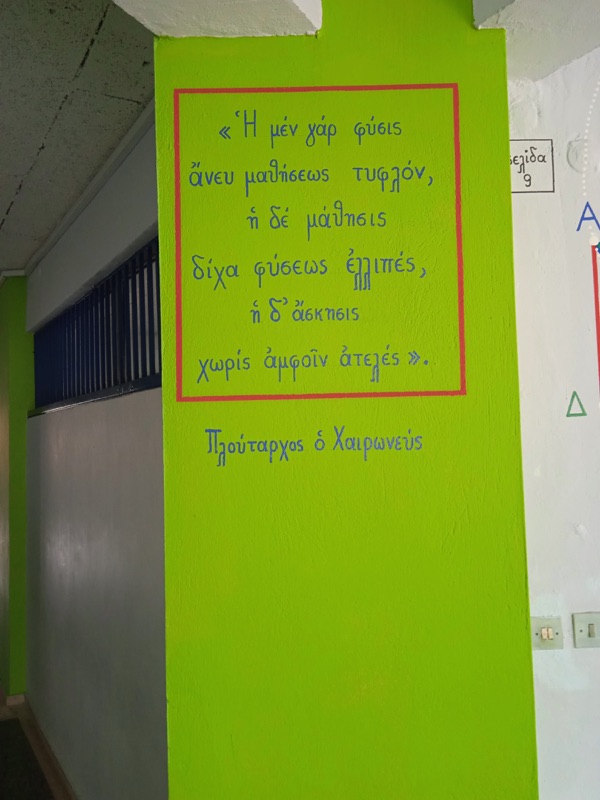 «Ἡ μέν γάρ φύσις
ἄνευ μαθήσεως τυφλόν,
ἡ δέ μάθησις
δίχα φύσεως ἐλλιπές,
ἡ δ᾽ ἄσκησις
χωρίς ἀμφοῖν ἀτελές».
Πλούταρχος ὁ Χαιρωνεύς
σελίδα
9
Α
Δ